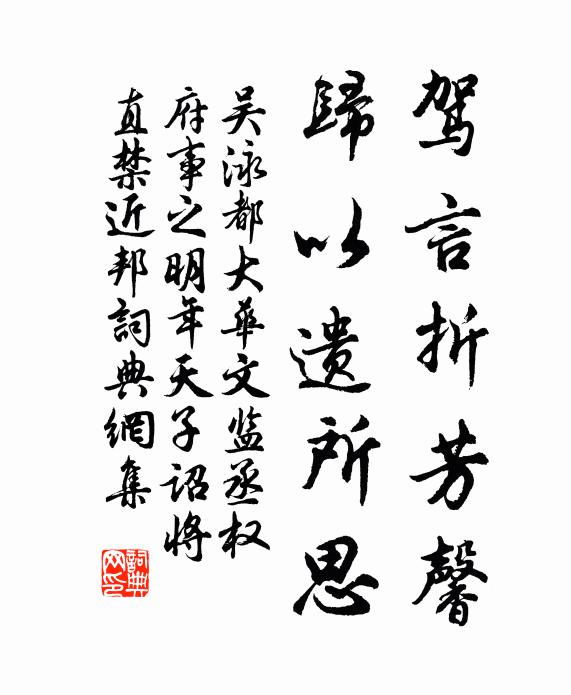 驾言折芳馨
歸以遗所思
吴泳都大華文监丞权
府事之明年天子诏將
直禁近邦詞典網集
詞典
网印